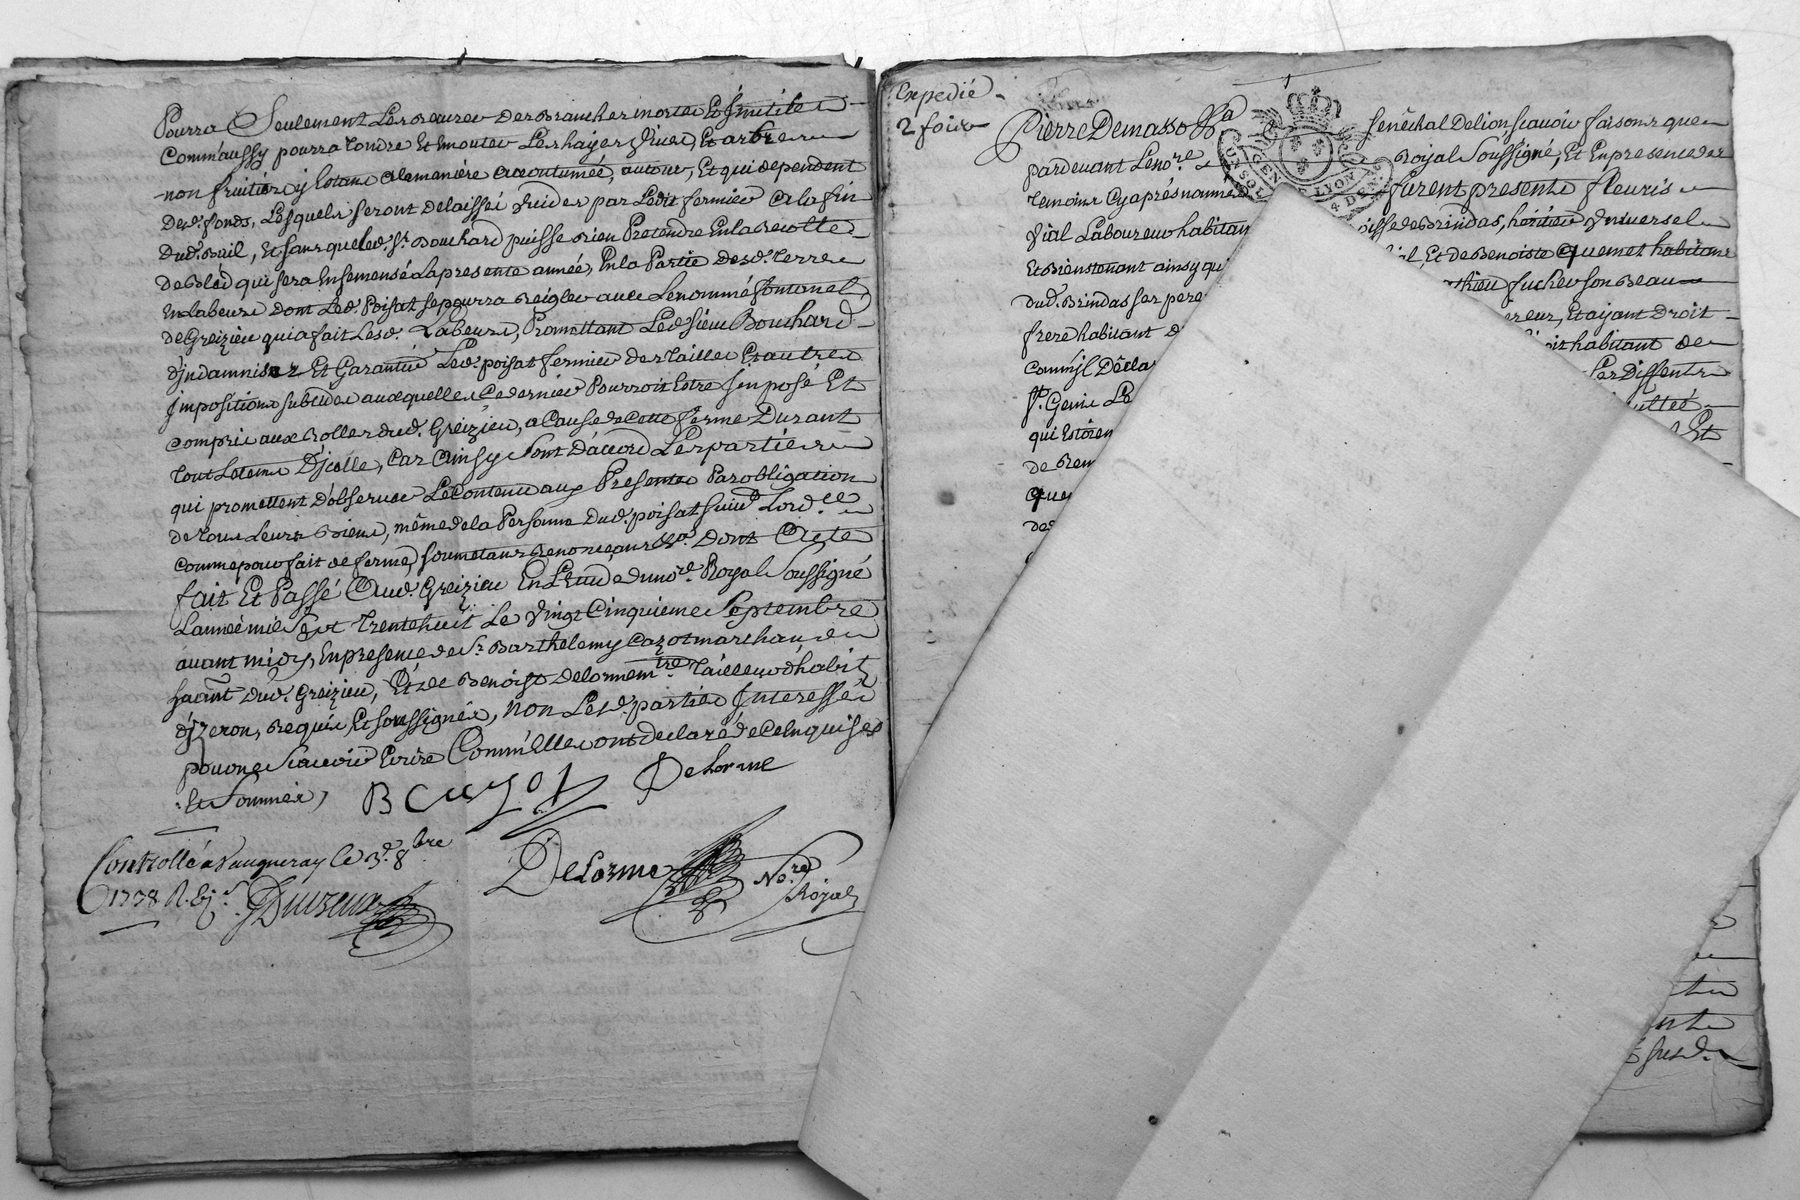 Pourra Seulement Les Beaures des Branches mortes Et Jnutiles
Comm'aussy pourra tondre Et monter Les hayes, Vives, Et arbres
non fruitiers y Estans alamanière accoutumée, autour, Et qui dependent
desd. fonds, Lesquels seront delaissés Vuides par Ledit fermier ala fin
Dud. Bail, Et sans que led. Sr. Bouchard puisse rien Pretendre En la Recolte
de Bled qui sera Ensemensé La presente année, En la Partie desd. Terres
En labeure dont Led. Poisat se pourra Reigler avec Le nommé fontunel
de Greizieu qui a fait Lesd. Labeure, Promettant Led. sieur Bouchard
d'jndamniser Et Garantir Led. poisat fermier des Tailles Et autres
Jmpositions subcides auxquelles Ce dernier Pourroit Estre Jmposé Et
compris aux Rolles dud. Greizieu, a Cause de Cette ferme Durant
tout Letems D'jcelle, Car Ainsy Sont D'accord Les parties
qui promettent d'observer Le Contenu aux Presentes Par obligation
de tous Leurs Biens, même de la Personne Dud. poisat suivt. Lord.ce
comme pour fait de ferme, soumetans Renonceans &a. Dont Acte
fait Et Passé Aud. Greizieu En L'Etude du nore. Royal Soussigné
L'année mil Sept Trente huit Le Vingt Cinquieme Septembre
avant midy, En presence de Sr. Barthelemy Cazot marchand
dud. Greizieu, Et de Benoist Delorme mtre. Tailleur d'habits
d'jzeron, Requis Et soussignés, Non Les d. parties Interessées
pour ne Scavoir Ecrire Comm'Elles ont declaré de ce Enquises
Et Sommées,
B Cazot Delorme
Controllé a Vaugneray le 3e. 8bre
1738 R.
DeLorme Nore. Royal
Expedié
2 fois
Pierre Demasso &a Senêchal De lion, scavoir faisons que
pardevant Le nore. Royal Soussigné, Et En presence des
temoins Cy aprés nommé furent presents fleuris
Vial Laboureur habitan isse de Brindas, héritier Vniversel
Et Bienstenant ainsy qui al, Et de Benoiste Quemet habitans
dud. Brindas ses pere athieu fucher son Beau
frere habitant d ereur, Et aijant Droit
Comm'jl Décla oit habitant de
St. Genis Le Les Diffents
qui Estoien ultés
de Rem Et
Ques
des